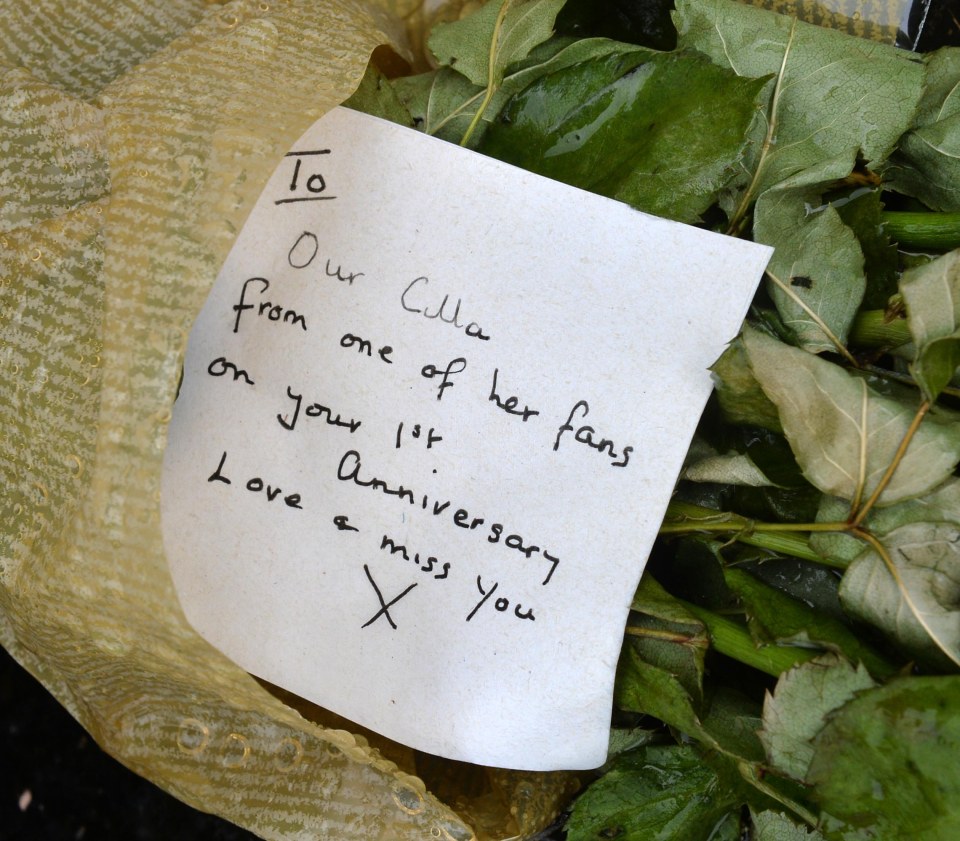 To
Our Cilla
from one of her fans
on your 1st
Anniversary
Love & miss you
X